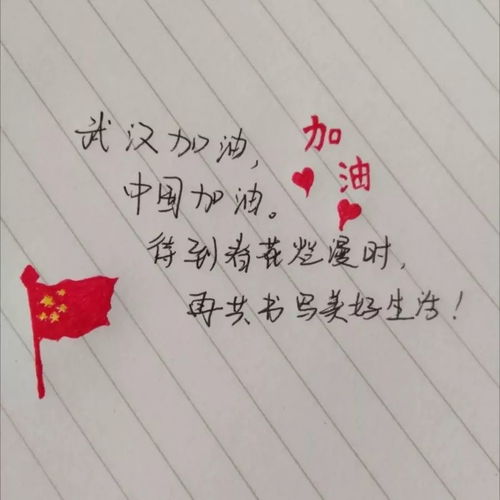 武汉加油，
中国加油。
待到春花烂漫时，
再共书写美好生活！
加
油